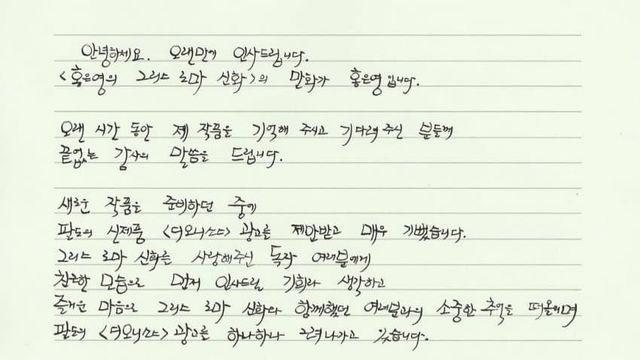 안녕하세요. 오랜만에 인사드립니다.
<홍은영의 그리스 로마 신화>의 만화가 홍은영입니다.
오랜 시간 동안 제 작품을 기억해 주시고 기다려주신 분들께
끝없는 감사의 말씀을 드립니다.
새로운 작품을 준비하던 중에
팔도의 신제품 <디오니소스> 광고를 제안받고 매우 기뻤습니다.
그리스 로마 신화를 사랑해주신 독자 여러분에게
친근한 모습으로 먼저 인사드릴 기회라 생각하고
즐거운 마음으로 그리스 로마 신화와 함께했던 여러분과의 소중한 추억을 떠올리며
팔도의 <디오니소스> 광고를 하나하나 그려나가고 있습니다.